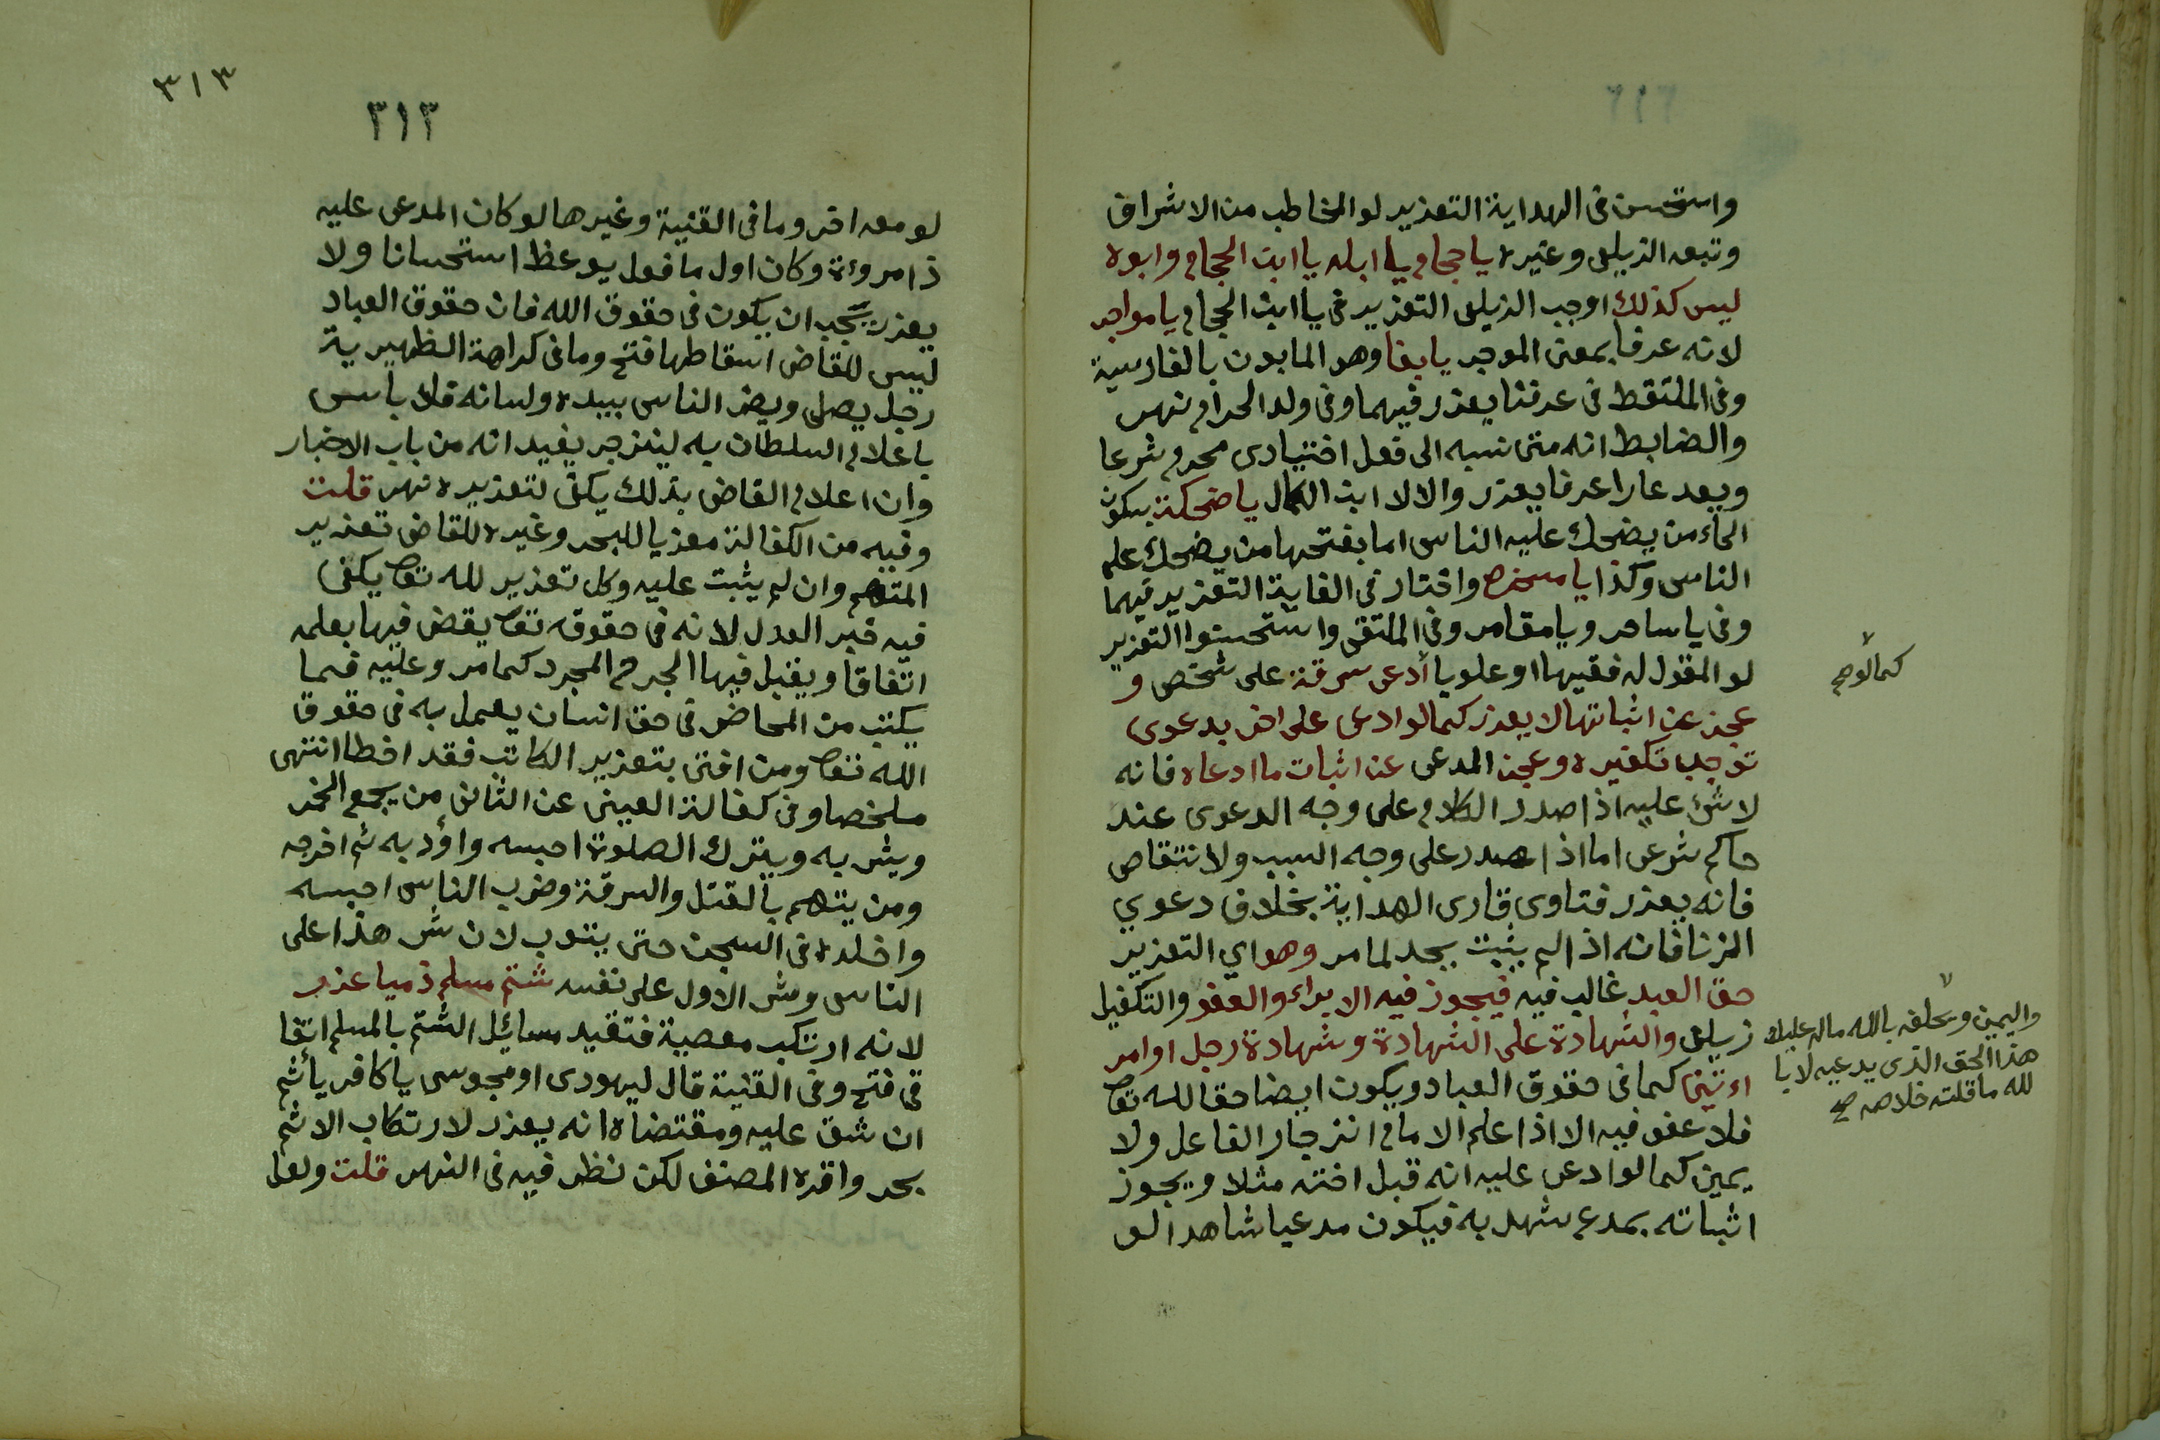 واستحسن فى الهداية التعزير لو المخاطب من الاشراف
وتبعه الزيلعى وغيره يا حجام يا ابله يا ابن الحجام وابوه
ليس كذلك اوجب الزيلعى التعزير فى يا ابن الحجام يا مواجر
لانه عرفا بمعنى الموجر يا بغا وهو المابون بالفارسية
وفى الملتقط فى عرفنا يعزر فيهما وفى ولد الحرام نهر
والضابط انه متى نسبه الى فعل اختيارى محرم شرعا
ويعد عارا عرفا يعزر والا لا ابن الكمال يا ضحكة بسكون
الحاء من يضحك عليه الناس اما بفتحها من يضحك على
الناس وكذا يا مسخره واختار فى الغاية التعزير فيهما
وفى يا ساحر ويا مقامر وفى الملتقى واستحسنوا التعزير
لو المقول له فقيها او علويا ادعى سرقة على شخص و
عجز عن اثباتها لا يعزر كما لو ادعى على اخر بدعوى
توجب تكفيره وعجز المدعى عن اثبات ما ادعاه فانه
لا شئ عليه اذا صدر الكلام على وجه الدعوى عند
حاكم شرعى اما اذا صدر على وجه السب ولانتقاص
فانه يعزر فتاوى قارى الهداية بخلاف دعوي
الزنا فانه اذا لم يثبت يحد لما مر وهو اي التعزير
حق العبد غالب فيه فيجوز فيه الابراء والعفو والتكفيل
زيلعى والشهادة على الشهادة وشهادة رجل وامر
اءتين كما فى حقوق العباد ويكون ايضا حقا لله تعا
فلا عفو فيه الا اذا علم الامام انزجار الفاعل ولا
يمين كما لو ادعى عليه انه قبل اخته مثلا ويجوز
اثباته بمدع شهد به فيكون مدعيا شاهدا لو
كما لو صح
واليمين ويحلفه بالله ماله عليك
هذا الحق الذى يدعيه لا با
لله ما قلته خلاصه صح
٣١٣
٣١٣
لو معه اخر وما فى القنية وغيرها لو كان المدعى عليه
ذا مروءة وكان اول ما فعل يوعظ استحسانا ولا
يعزر يجب ان يكون فى حقوق الله فان حقوق العباد
ليس للقاضى اسقاطها فتح وما فى كراهة الظهيرية
رجل يصلى ويضر الناس بيده ولسانه فلا باس
باعلام السلطان به لينزجر يفيد انه من باب الاخبار
وان اعلام القاضى بذلك يكفى لتعزيره نهر قلت
وفيه من الكفالة معزيا للبحر وغيره للقاضى تعزير
المتهم وان لم يثبت عليه وكل تعزير لله تعا يكفى
فيه خبر العدل لانه فى حقوقه تعا يقضى فيها بعلمه
اتفاقا ويقبل فيها الجرح المجرد كما مر وعليه فما
يكتب من المحاضر فى حق انسان يعمل به فى حقوق
الله تعا ومن افتى بتعزير الكاتب فقد اخطا انتهى
ملخصا وفى كفالة العينى عن الثانى من يجمع الخمر
ويشربه ويترك الصلوة احبسه واؤدبه ثم اخرجه
ومن يتهم بالقتل والسرقة وضرب الناس احبسه
واخلده فى السجن حتى يتوب لان شر هذا على
الناس وشر الاول على نفسه شتم مسلم ذميا عزر
لانه ارتكب معصية فتقيد مسائل الشتم بالمسلم اتفا
قى فتح وفى القنية قال ليهودى او مجوسى يا كافر يأثم
ان شق عليه ومقتضاه انه يعزر لارتكاب الاثم
بحر واقره المصنف لكن نظر فيه فى النهر قلت ولعل